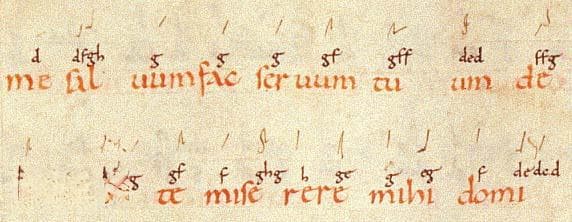 d dfgh g g g gf gff ded ffg
me sal uum fac ser uum tu um de
g gf f ghg h ge g eg f deded
te mise rere mihi domi